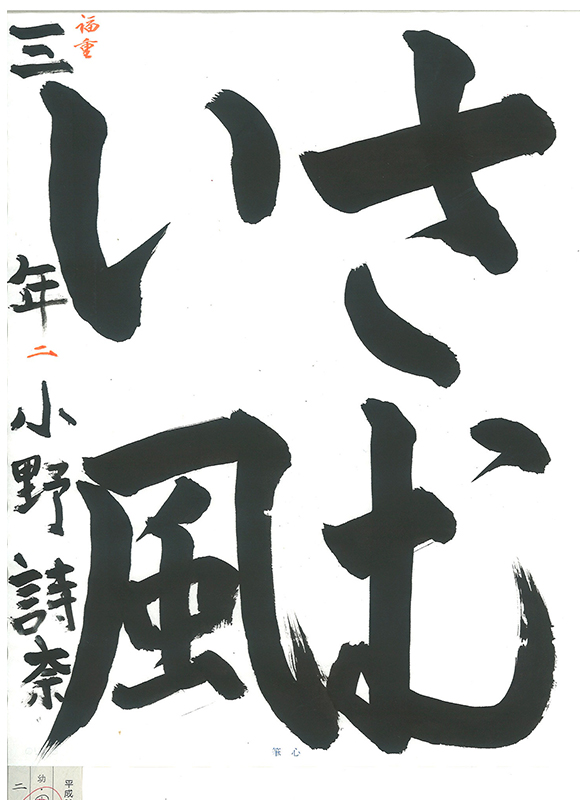 さむ
い風
福重
三年二小野詩奈
心
幼
二
平成